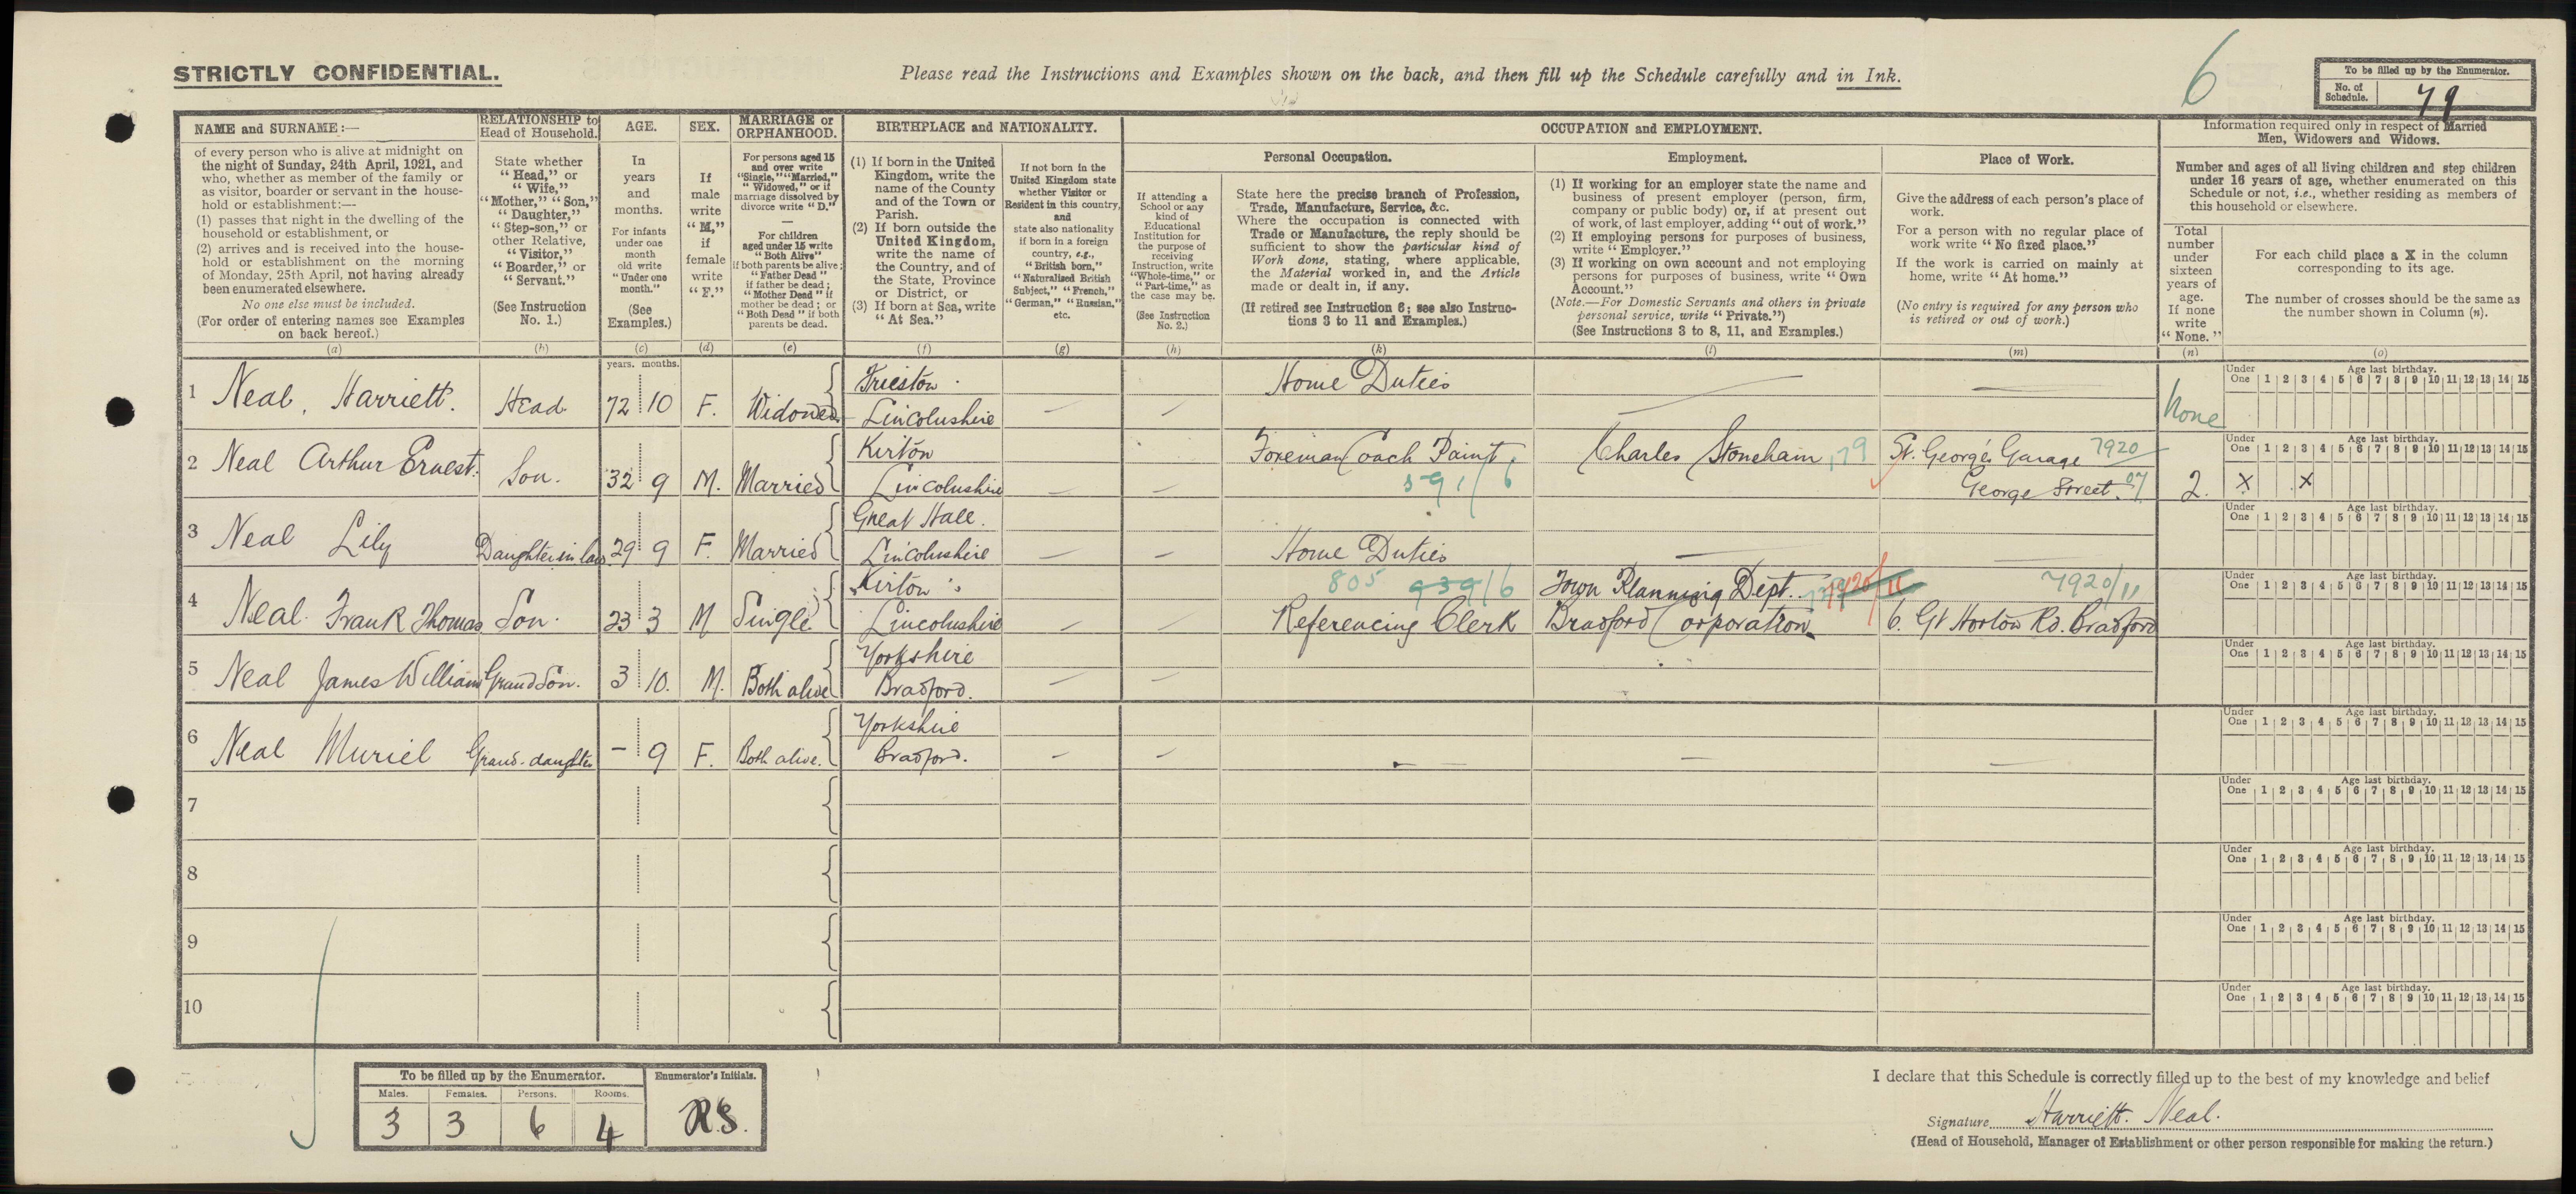 STRICTLY CONFIDENTIAL.
Please read the Instructions and Examples shown on the back, and then fill up the Schedule carefully and in Ink.
6
To be filled up by the Enumerator.
No. of Schedule. 79
NAME and SURNAME:—
of every person who is alive at midnight on
the night of Sunday, 24th April, 1921, and
who, whether as member of the family or
as visitor, boarder or servant in the house-
hold or establishment:—
(1) passes that night in the dwelling of the
household or establishment, or
(2) arrives and is received into the house-
hold or establishment on the morning
of Monday, 25th April, not having already
been enumerated elsewhere.
No one else must be included.
(For order of entering names see Examples
on back hereof.)
(a)
RELATIONSHIP to
Head of Household.
State whether
"Head," or
"Wife,"
"Mother," "Son,"
"Daughter,"
"Step-son," or
other Relative,
"Visitor,"
"Boarder," or
"Servant."
(See Instruction
No. 1.)
(b)
AGE.
In
years
and
months.
For infants
under one
month
old write
"Under one
month."
(See
Examples.)
(c)
SEX.
If
male
write
"M,"
if
female
write
"F."
(d)
MARRIAGE or
ORPHANHOOD.
For persons aged 15
and over write
"Single," "Married,"
"Widowed," or if
marriage dissolved by
divorce write "D."
—
For children
aged under 15 write
"Both Alive"
if both parents be alive;
"Father Dead"
if father be dead;
"Mother Dead" if
mother be dead; or
"Both Dead" if both
parents be dead.
(e)
BIRTHPLACE and NATIONALITY.
(1) If born in the United
Kingdom, write the
name of the County
and of the Town or
Parish.
(2) If born outside the
United Kingdom,
write the name of
the Country, and of
the State, Province
or District, or
(3) If born at Sea, write
"At Sea."
(f)
If not born in the
United Kingdom state
whether Visitor or
Resident in this country,
and
state also nationality
if born in a foreign
country, e.g.,
"British born,"
"Naturalised British
Subject," "French,"
"German," "Russian,"
etc.
(g)
OCCUPATION and EMPLOYMENT.
If attending a
School or any
kind of
Educational
Institution for
the purpose of
receiving
Instruction, write
"Whole-time," or
"Part-time," as
the case may be.
(See Instruction
No. 2.)
(h)
Personal Occupation.
State here the precise branch of Profession,
Trade, Manufacture, Service, &c.
Where the occupation is connected with
Trade or Manufacture, the reply should be
sufficient to show the particular kind of
Work done, stating, where applicable,
the Material worked in, and the Article
made or dealt in, if any.
(If retired see Instruction 6; see also Instruc-
tions 3 to 11 and Examples.)
(k)
Employment.
(1) If working for an employer state the name and
business of present employer (person, firm,
company or public body) or, if at present out
of work, of last employer, adding "out of work."
(2) If employing persons for purposes of business,
write "Employer."
(3) If working on own account and not employing
persons for purposes of business, write "Own
Account."
(Note.—For Domestic Servants and others in private
personal service, write "Private.")
(See Instructions 3 to 8, 11, and Examples.)
(l)
Place of Work.
Give the address of each person's place of
work.
For a person with no regular place of
work write "No fixed place."
If the work is carried on mainly at
home, write "At home."
(No entry is required for any person who
is retired or out of work.)
(m)
Information required only in respect of Married
Men, Widowers and Widows.
Number and ages of all living children and step children
under 16 years of age, whether enumerated on this
Schedule or not, i.e., whether residing as members of
this household or elsewhere.
Total
number
under
sixteen
years of
age.
If none
write
"None."
(n)
For each child place a X in the column
corresponding to its age.
The number of crosses should be the same as
the number shown in Column (n).
(o)
years. months.
1 Neal, Harriett. Head 72 10 F. Widowed Frieston Lincolnshire — — Home Duties — — None
Under One Age last birthday. 1 2 3 4 5 6 7 8 9 10 11 12 13 14 15
2 Neal Arthur Ernest. Son. 32 9 M. Married Kirton Lincolnshire — — Foreman Coach Paint. 591/6 Charles Stoneham 179 St. George's Garage 7920 George Street. 07 2. X X
Under One Age last birthday. 1 2 3 4 5 6 7 8 9 10 11 12 13 14 15
3 Neal Lily Daughter in law 29 9 F. Married Great Hale. Lincolnshire — — Home Duties — —
Under One Age last birthday. 1 2 3 4 5 6 7 8 9 10 11 12 13 14 15
4 Neal. Frank Thomas Son. 23 3 M Single Kirton Lincolnshire — — 805 939/6 Referencing Clerk Town Planning Dept. Bradford Corporation 7920/11 6. Gt Horton Rd. Bradford
Under One Age last birthday. 1 2 3 4 5 6 7 8 9 10 11 12 13 14 15
5 Neal James William Grand Son. 3 10. M. Both alive Yorkshire Bradford. — —
Under One Age last birthday. 1 2 3 4 5 6 7 8 9 10 11 12 13 14 15
6 Neal Muriel Grand-daughter — 9 F. Both alive. Yorkshire Bradford. — — — — —
Under One Age last birthday. 1 2 3 4 5 6 7 8 9 10 11 12 13 14 15
7
Under One Age last birthday. 1 2 3 4 5 6 7 8 9 10 11 12 13 14 15
8
Under One Age last birthday. 1 2 3 4 5 6 7 8 9 10 11 12 13 14 15
9
Under One Age last birthday. 1 2 3 4 5 6 7 8 9 10 11 12 13 14 15
10
Under One Age last birthday. 1 2 3 4 5 6 7 8 9 10 11 12 13 14 15
To be filled up by the Enumerator. Enumerator's Initials.
Males. Females. Persons. Rooms.
3 3 6 4 R.S.
I declare that this Schedule is correctly filled up to the best of my knowledge and belief
Signature Harriett. Neal.
(Head of Household, Manager of Establishment or other person responsible for making the return.)